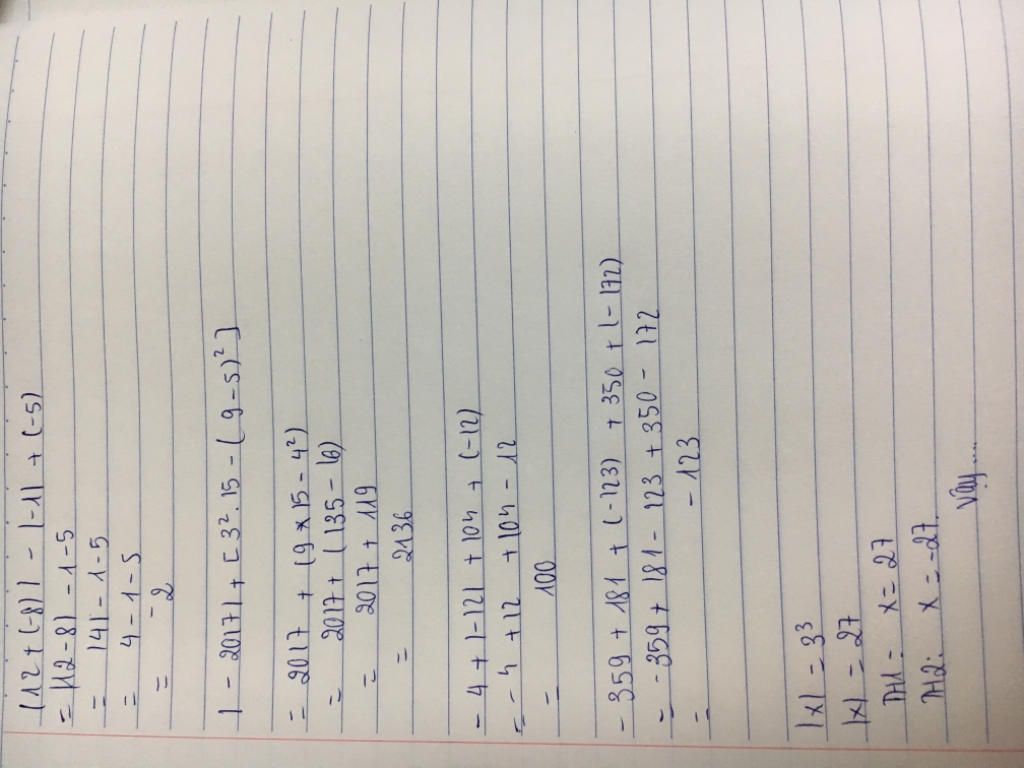 |12 + (-8)| - |-1| + (-5)
= |12 - 8| - 1 - 5
= |4| - 1 - 5
= 4 - 1 - 5
= -2
| - 2017| + [3². 15 - (9 - 5)²]
= 2017 + (9 × 15 - 4²)
= 2017 + (135 - 16)
= 2017 + 119
= 2136
- 4 + |-12| + 104 + (-12)
= - 4 + 12 + 104 - 12
= 100
- 359 + 181 + (-123) + 350 + (-172)
= -359 + 181 - 123 + 350 - 172
= - 123
|x| = 3³
|x| = 27
TH1: x = 27
TH2: x = -27.
Vậy.....